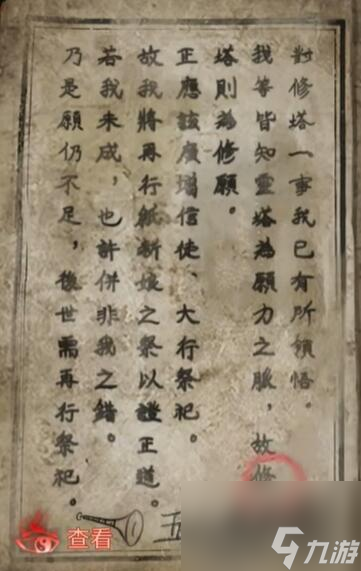 對修塔一事我已有所領悟。
我等皆知靈塔為願力之脈，故修
塔則為修願。
正應該廣增信使、大行祭祀。
故我將再行紙新娘之祭以證正道。
若我未成，也許併非我之錯。
乃是願仍不足，後世需再行祭祀。
五
查看
九游